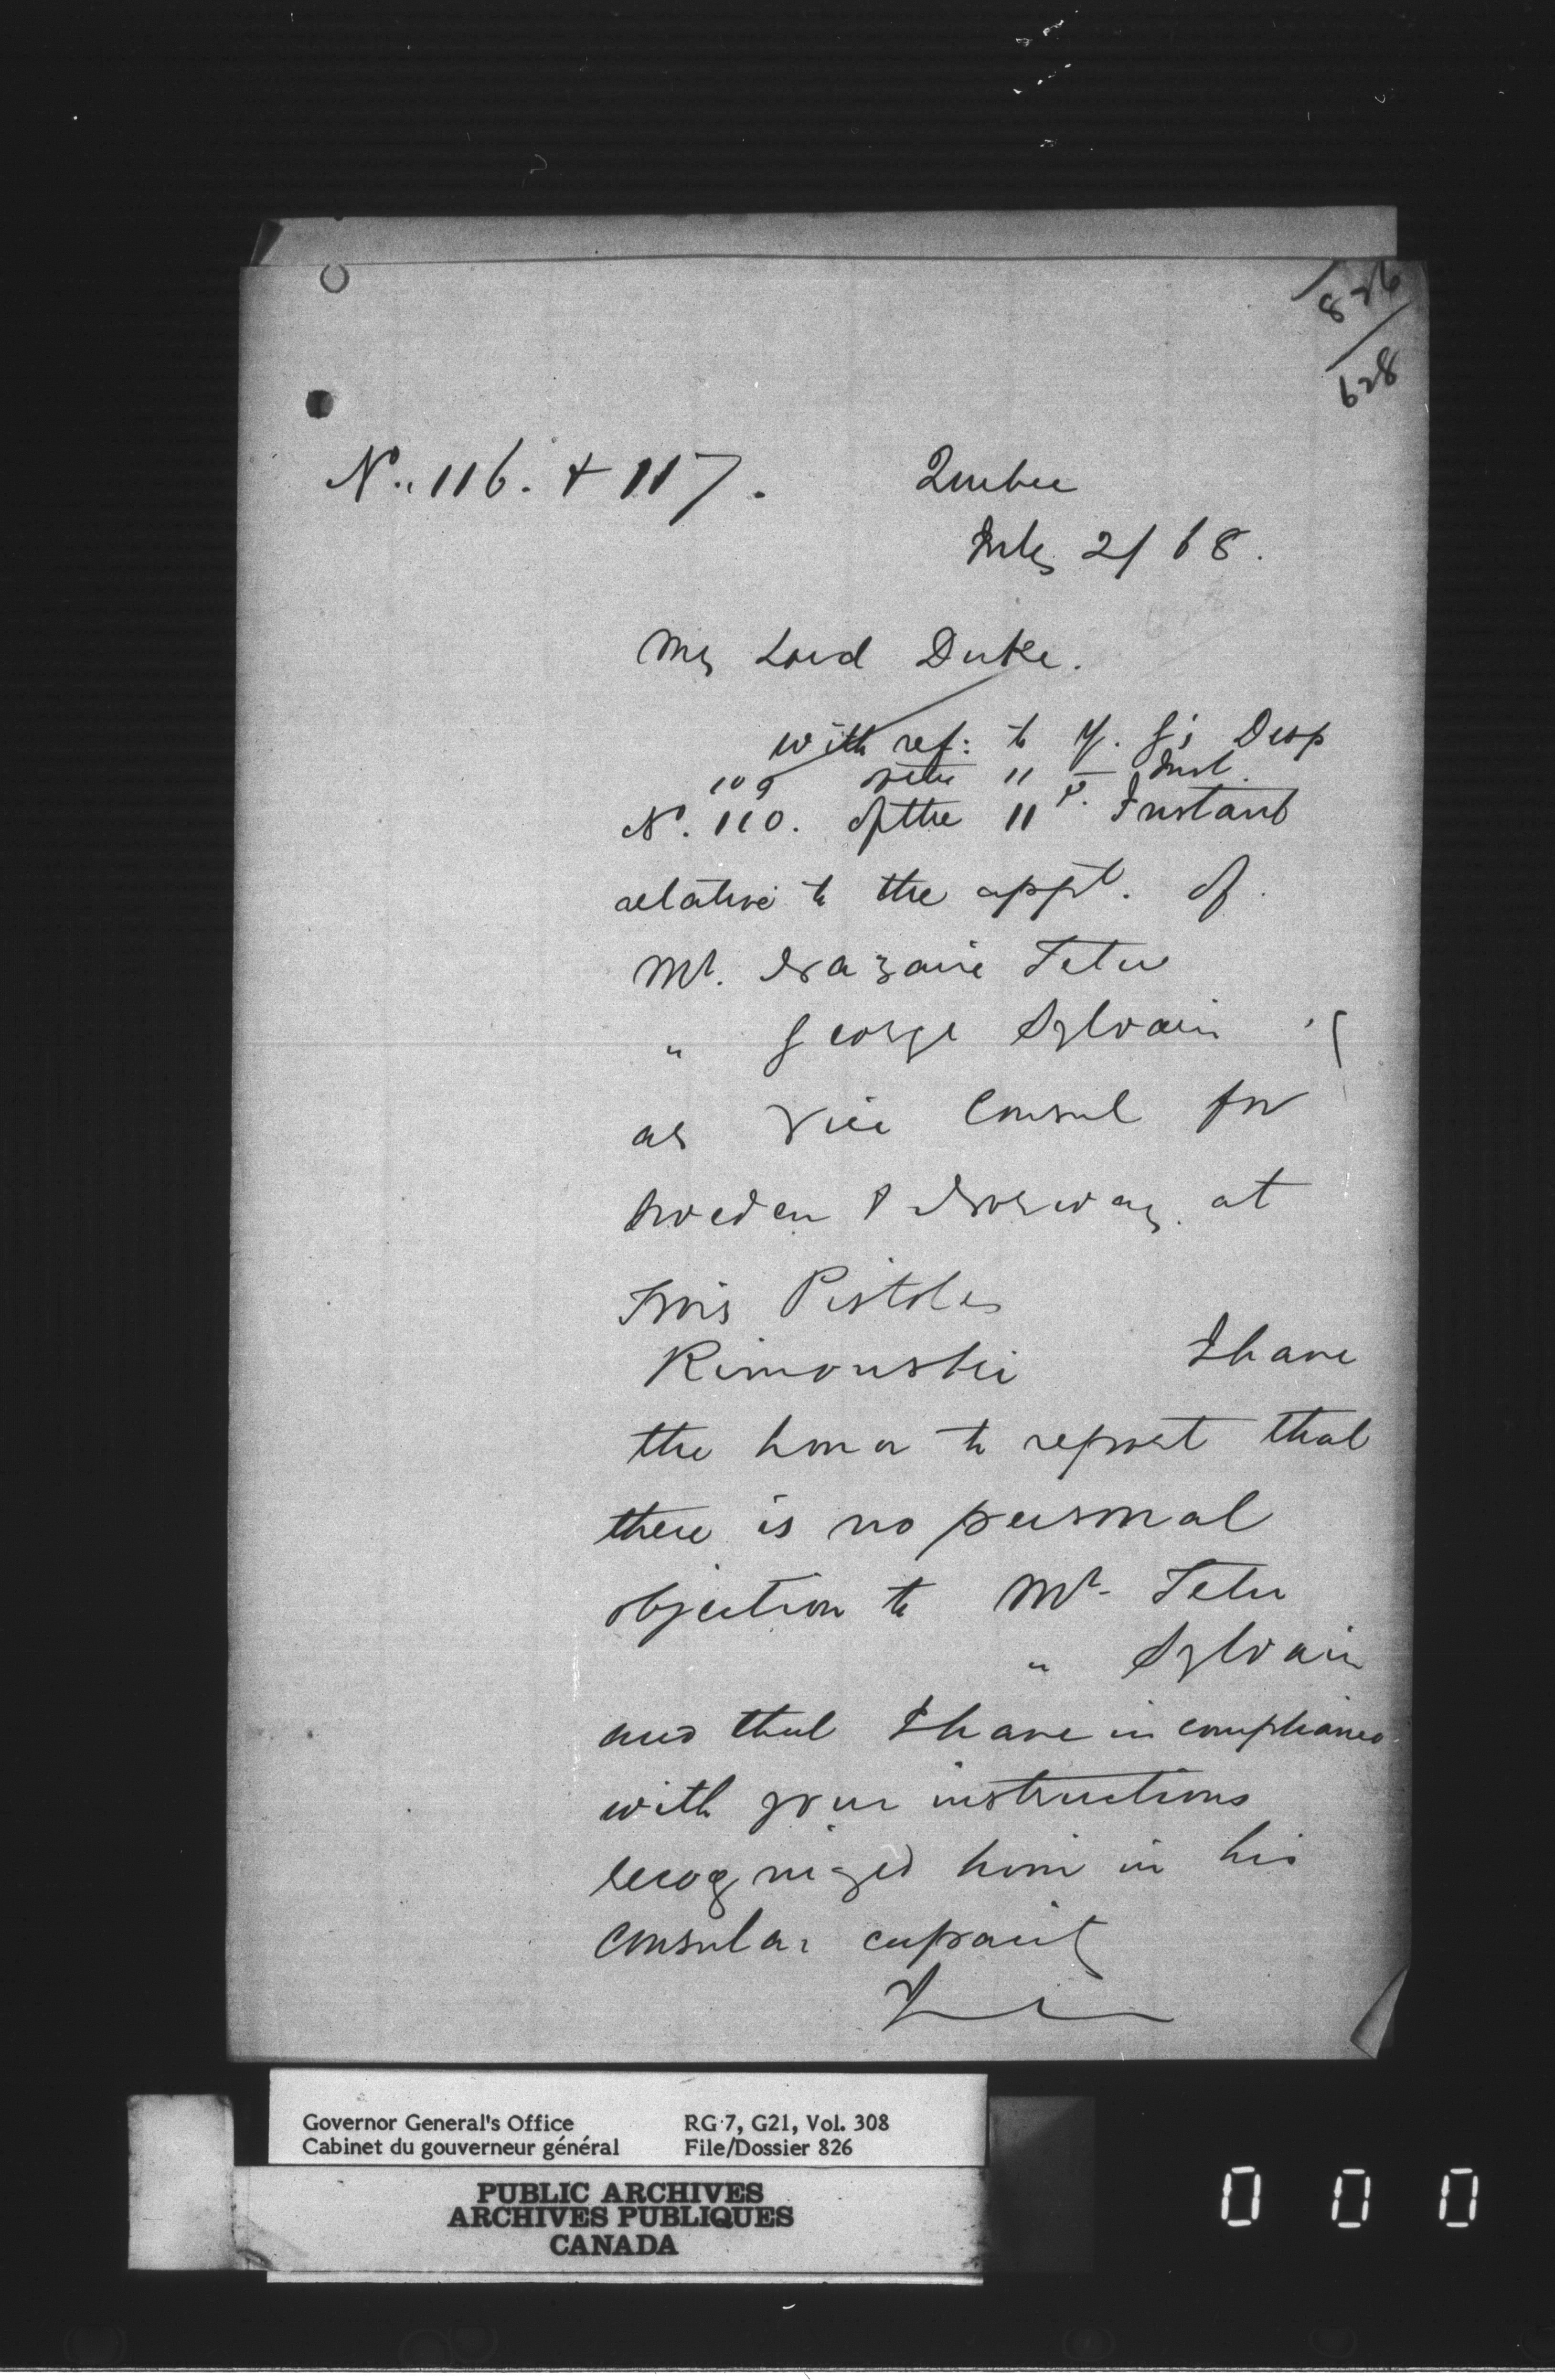 826
628
No. 116. + 117.
Quebec
July 21 68.
My Lord Duke.
with ref: to Y. G's Desp
109 of the 11th Inst.
No. 110. of the 11th. Instant
relative to the appt. of
Mr. Nazaire Tetu
" George Sylvain
as Vice Consul for
Sweden & Norway. at
Trois Pistoles
Rimouski I have
the honor to report that
there is no personal
objection to Mr. Tetu
" Sylvain
and that I have in compliance
with your instructions
recognized him in his
consular capacity
Governor General's Office
Cabinet du gouverneur général
RG 7, G21, Vol. 308
File/Dossier 826
PUBLIC ARCHIVES
ARCHIVES PUBLIQUES
CANADA
0 0 0